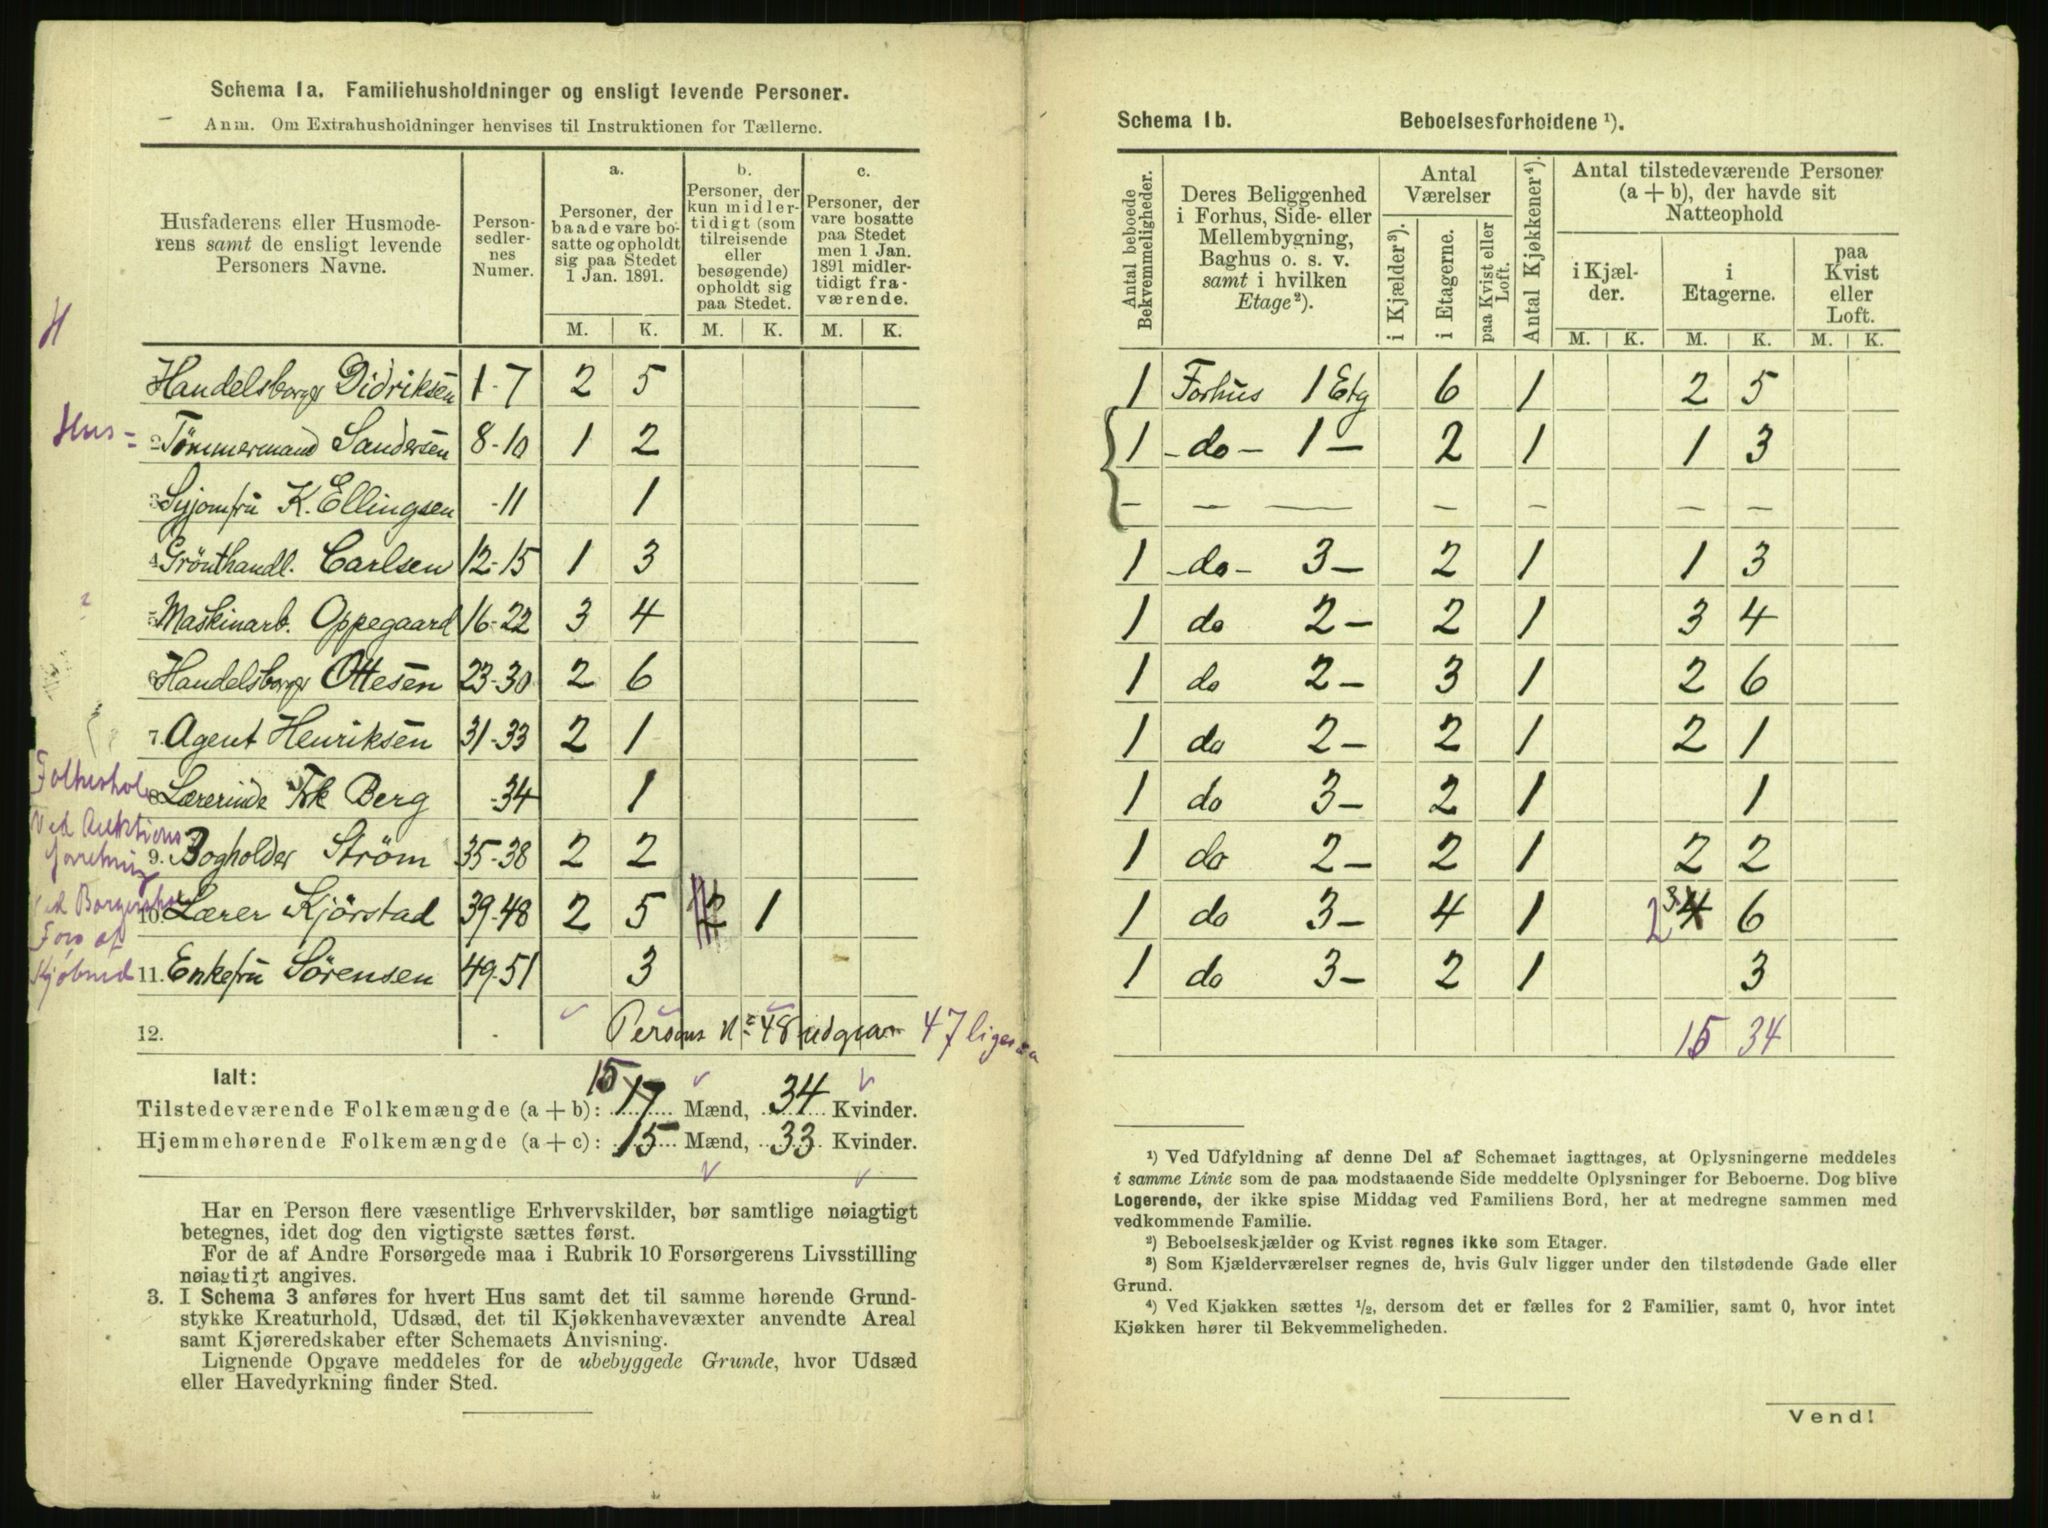 Schema 1a. Familiehusholdninger og ensligt levende Personer.
Anm. Om Extrahusholdninger henvises til Instruktionen for Tællerne.
Husfaderens eller Husmoderens samt de ensligt levende Personers Navne.
Personsedlernes Numer.
a. Personer, der baade vare bosatte og opholdt sig paa Stedet 1 Jan. 1891.
b. Personer, der kun midlertidigt (som tilreisende eller besøgende) opholdt sig paa Stedet.
c. Personer, der vare bosatte paa Stedet men 1 Jan. 1891 midlertidigt fraværende.
M. K. M. K. M. K.
H
Handelsborger Didriksen 1-7 2 5
Hus=
2 Tømmermand Sandersen 8-10 1 2
3 Syjomfru K. Ellingsen -11 1
4 Grönthandl. Carlsen 12-15 1 3
5 Maskinarb. Oppegaard 16-22 3 4
6 Handelsborger Ottesen 23-30 2 6
7. Agent Henriksen 31-33 2 1
8 Lærerinde Frk Berg -34 1
Ved Auktions
9. Bogholder Strøm 35-38 2 2
10. Lærer Kjörstad 39-48 2 5 2 1
11. Enkefru Sörensen 49-51 3
12. Persons No 48 udgaar 47 ligesaa
Ialt:
Tilstedeværende Folkemængde (a + b): 15 17 Mænd, 34 Kvinder.
Hjemmehørende Folkemængde (a + c): 15 Mænd, 33 Kvinder.
Har en Person flere væsentlige Erhvervskilder, bør samtlige nøiagtigt
betegnes, idet dog den vigtigste sættes først.
For de af Andre Forsørgede maa i Rubrik 10 Forsørgerens Livsstilling
nøiagtigt angives.
3. I Schema 3 anføres for hvert Hus samt det til samme hørende Grund-
stykke Kreaturhold, Udsæd, det til Kjøkkenhavevæxter anvendte Areal
samt Kjøreredskaber efter Schemaets Anvisning.
Lignende Opgave meddeles for de ubebyggede Grunde, hvor Udsæd
eller Havedyrkning finder Sted.
Schema 1b. Beboelsesforholdene ¹).
Antal beboede Bekvemmeligheder.
Deres Beliggenhed i Forhus, Side- eller Mellembygning, Baghus o. s. v. samt i hvilken Etage ²).
Antal Værelser
i Kjælder ³).
i Etagerne.
paa Kvist eller Loft.
Antal Kjøkkener ⁴).
Antal tilstedeværende Personer (a + b), der havde sit Natteophold
i Kjælder.
i Etagerne.
paa Kvist eller Loft.
M. K. M. K. M. K.
1 Forhus 1 Etg 6 1 2 5
1 - do - 1 - 2 1 1 3
— — — — — — —
1 - do - 3 - 2 1 1 3
1 do 2 - 2 1 3 4
1 do 2 - 3 1 2 6
1 do 2 - 2 1 2 1
1 do 3 - 2 1 1
1 do 2 - 2 1 2 2
1 do 3 - 4 1 2 3 4 6
1 do 3 - 2 1 3
15 34
¹) Ved Udfyldning af denne Del af Schemaet iagttages, at Oplysningerne meddeles
i samme Linie som de paa modstaaende Side meddelte Oplysninger for Beboerne. Dog blive
Logerende, der ikke spise Middag ved Familiens Bord, her at medregne sammen med
vedkommende Familie.
²) Beboelseskjælder og Kvist regnes ikke som Etager.
³) Som Kjælderværelser regnes de, hvis Gulv ligger under den tilstødende Gade eller
Grund.
⁴) Ved Kjøkken sættes ½, dersom det er fælles for 2 Familier, samt 0, hvor intet
Kjøkken hører til Bekvemmeligheden.
Vend!